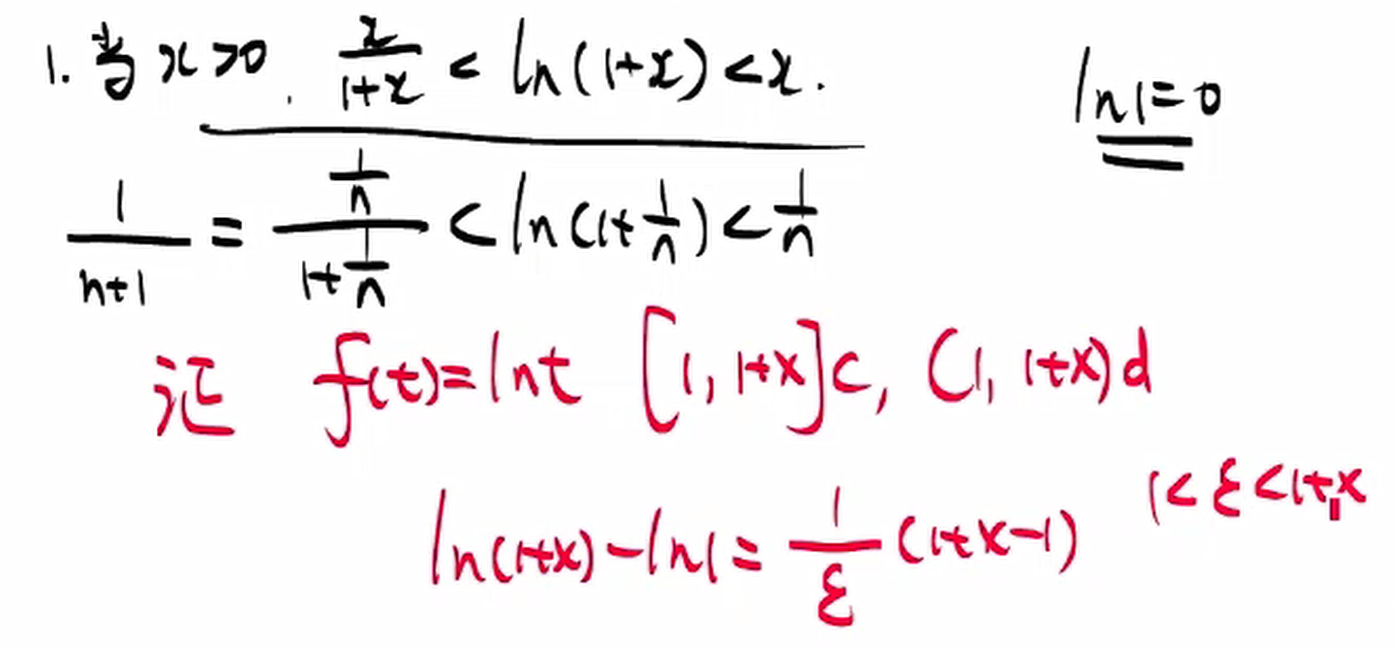 1. 当 x>0. x/(1+x) < ln(1+x) < x.
ln1=0
1/(n+1) = (1/n)/(1+1/n) < ln(1+1/n) < 1/n
证 f(t)=lnt [1, 1+x]c, (1, 1+x)d
ln(1+x)-ln1 = 1/ξ (1+x-1) 1<ξ<1+x